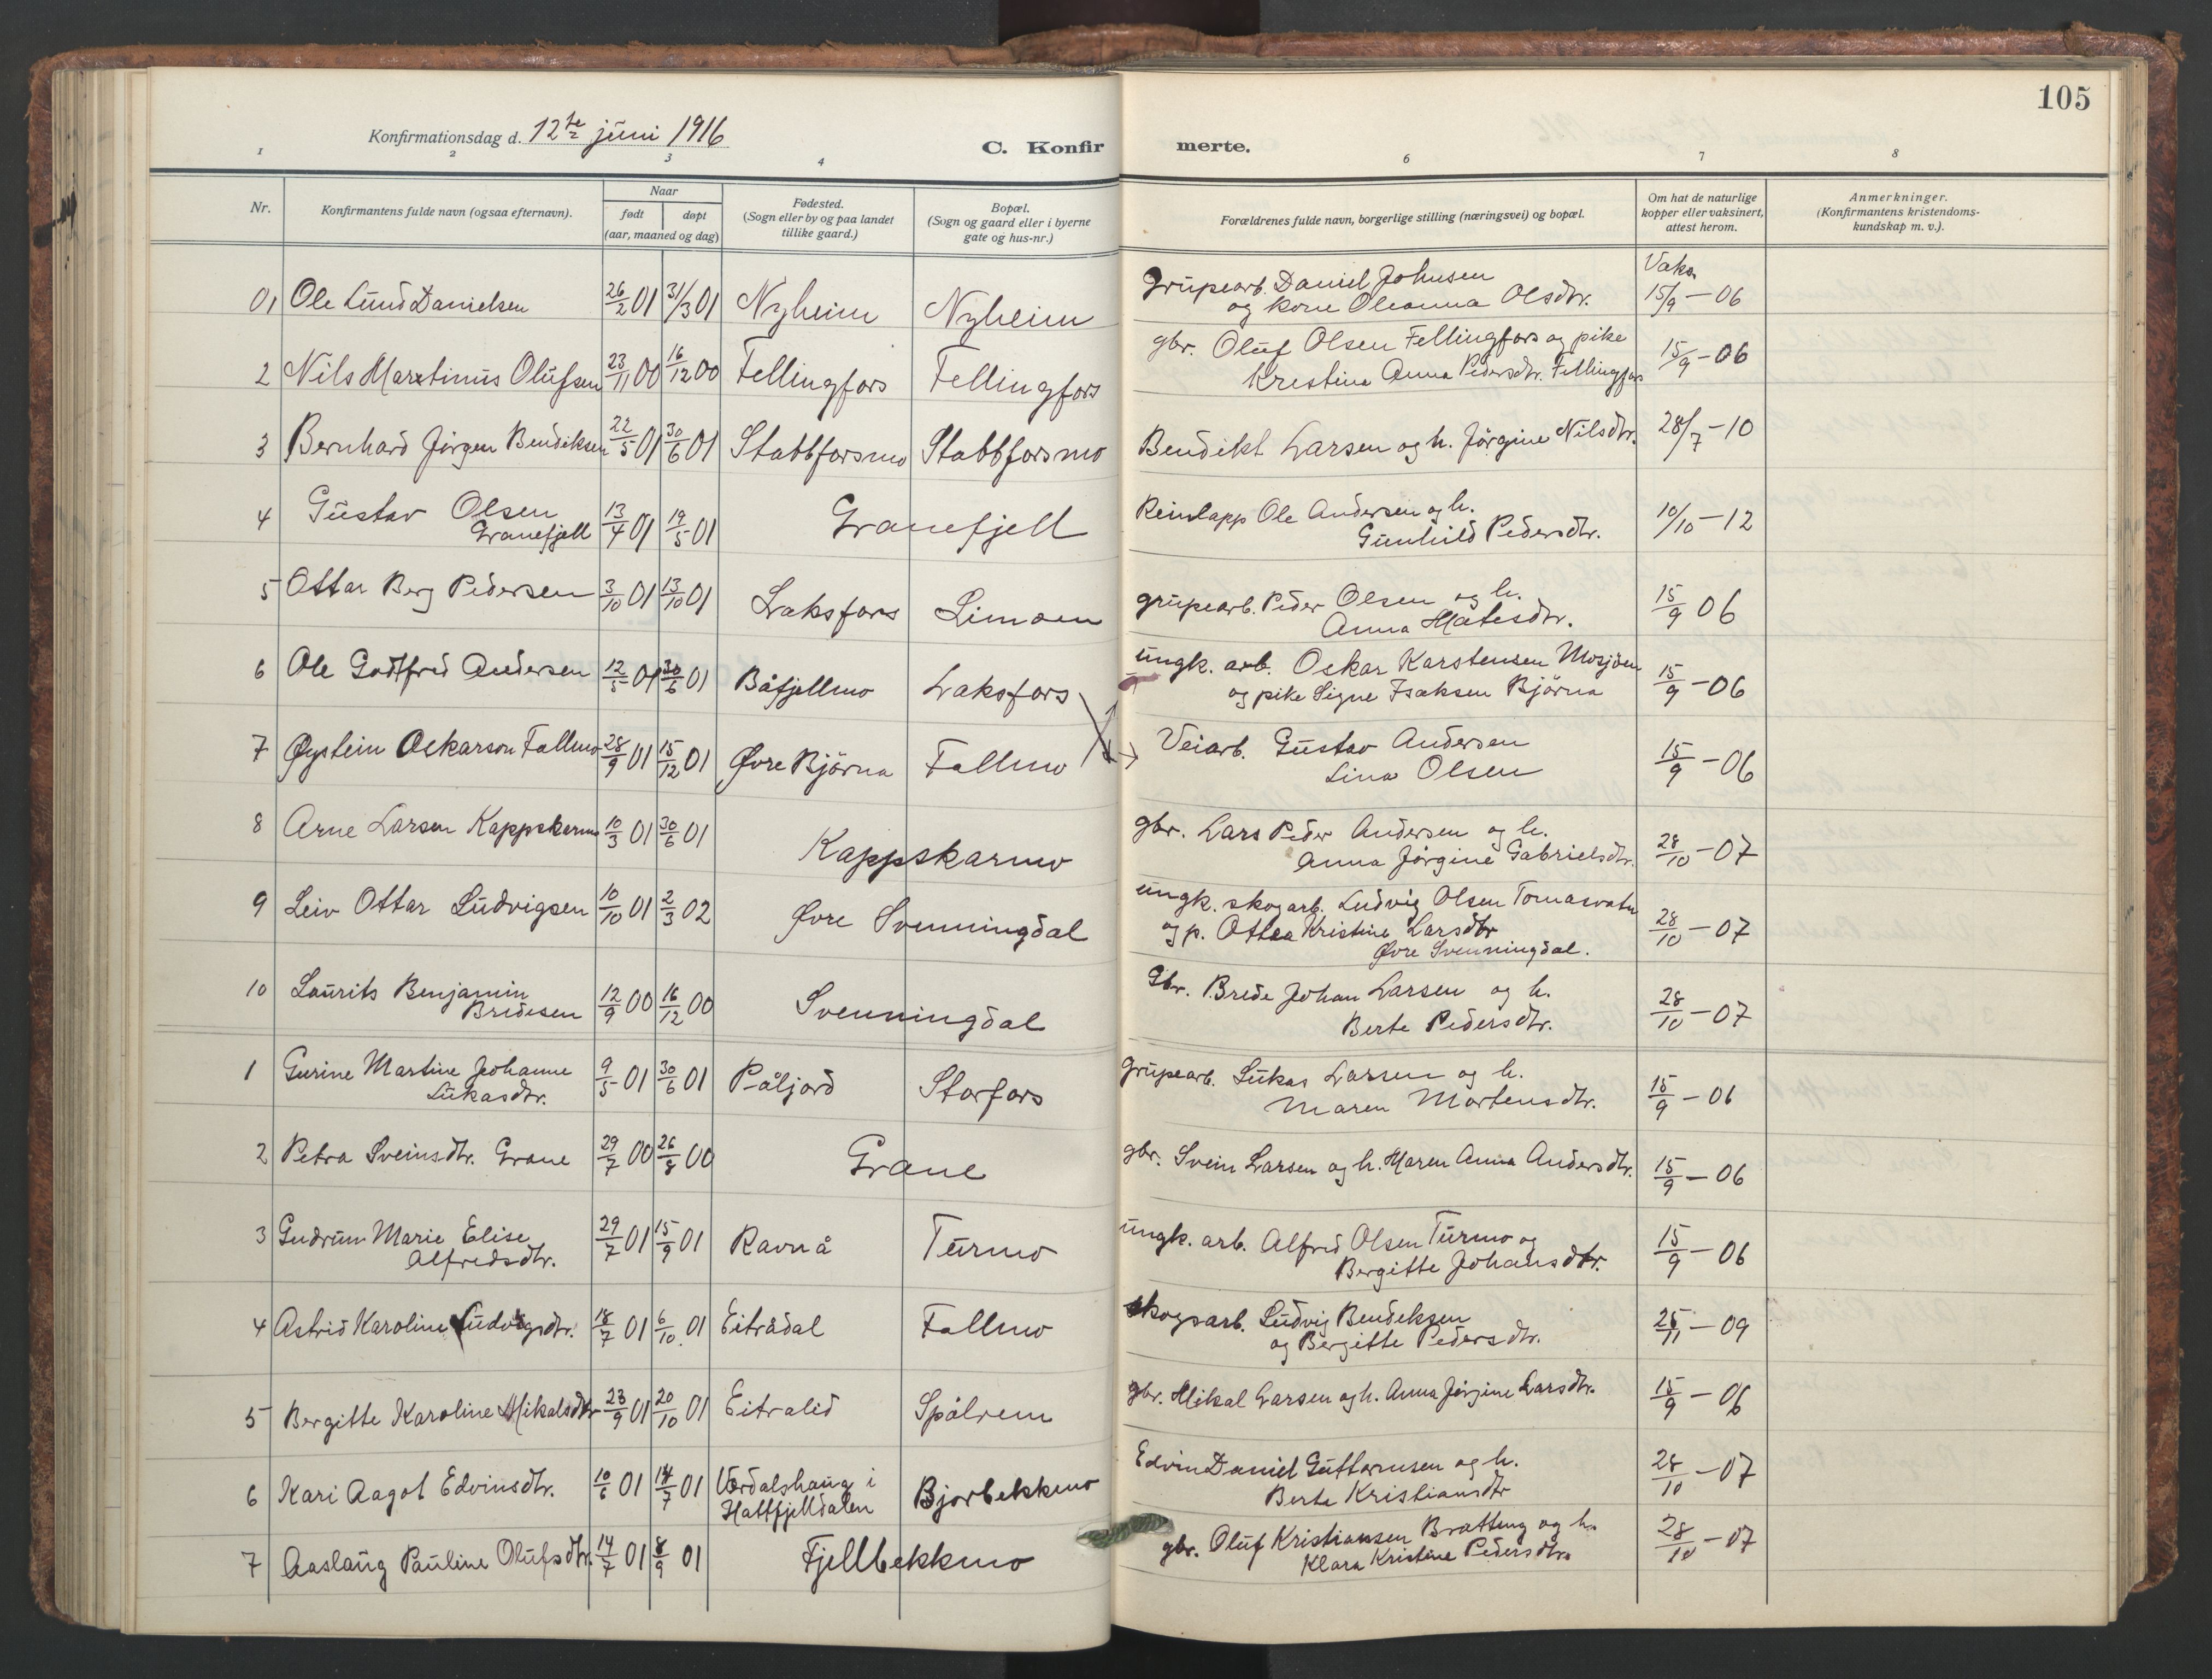 105
Konfirmationsdag d. 12te juni 1916
C. Konfirmerte.
1 2 3 4 6 7 8
Nr. Konfirmantens fulde navn (ogsaa efternavn). Naar født døpt (aar, maaned og dag) Fødested. (Sogn eller by og paa landet tillike gaard.) Bopæl. (Sogn og gaard eller i byerne gate og hus-nr.) Forældrenes fulde navn, borgerlige stilling (næringsvei) og bopæl. Om hat de naturlige kopper eller vaksinert, attest herom. Anmerkninger. (Konfirmantens kristendoms-kundskap m. v.).
01 Ole Lund Danielsen 26/2 01 31/3 01 Nyheim Nyheim Grupearb. Daniel Johnsen og kone Oleanna Olsdtr. Vaks. 15/9 - 06
2 Nils Martinus Olufsen 23/11 00 16/12 00 Fellingfors Fellingfors gbr. Oluf Olsen Fellingfors og pike Kristina Anna Pedersdtr. Fellingfors 15/9 - 06
3 Bernhard Jörgen Bendiksen 22/5 01 30/6 01 Stabbforsmo Stabbforsmo Bendikt Larsen og h. Jörgine Nilsdtr. 28/7 - 10
4 Gustav Olsen Granefjell 13/4 01 19/5 01 Granefjell Reinlapp Ole Andersen og h. Gunhild Pedersdtr. 10/10 - 12
5 Ottar Berg Pedersen 3/10 01 13/10 01 Laksfors Limoen grupearb. Peder Olsen og h. Anna Matesdtr. 15/9 06
6 Ole Godtfred Andersen 12/5 01 30/6 01 Båfjellmo Laksfors ungk. arb. Oskar Karstensen Mosjöen og pike Signe Isaksen Björna 15/9 - 06
7 Øystein Oskarson Fallmo 28/9 01 15/12 01 Øvre Björna Fallmo Veiarb. Gustav Andersen Lina Olsen 15/9 - 06
8 Arne Larsen Kappskarmo 10/3 01 30/6 01 Kappskarmo gbr. Lars Peder Andersen og h. Anna Jörgine Gabrielsdtr. 28/10 - 07
9 Leiv Ottar Ludvigsen 10/10 01 2/3 02 Øvre Svenningdal ungk. skogarb. Ludvig Olsen Tomasvatn og p. Ottea Kristine Larsdtr Øvre Svenningdal. 28/10 - 07
10 Laurits Benjamin Bredesen 12/9 00 16/12 00 Svenningdal Gbr. Brede Johan Larsen og h. Berte Pedersdtr. 28/10 - 07
1 Gurine Martine Johanne Lukasdtr. 9/5 01 30/6 01 Påljord Storfors Grupearb. Lukas Larsen og h. Maren Mortensdtr. 15/9 - 06
2 Petra Sveinsdtr. Grane 29/7 00 26/8 00 Grane gbr. Svein Larsen og h. Maren Anna Andersdtr. 15/9 - 06
3 Gudrun Marie Elise Alfredsdtr. 29/7 01 15/9 01 Ravnå Turmo ungk. arb. Alfred Olsen Turmo og Bergitte Johansdtr. 15/9 - 06
4 Astrid Karoline Ludvigsdtr. 18/7 01 6/10. 01 Eitrådal Fallmo skogsarb. Ludvig Bendeksen og Bergitte Pedersdtr. 26/11 - 09
5 Bergitte Karoline Mikalsdtr 23/9 01 20/10 01 Eitralid Spålrem gbr. Mikal Larsen og h. Anna Jörgine Larsdtr. 15/9 - 06
6 Kari Aagot Edvinsdtr. 10/6 01 14/7 01 Vordalshaug i Hattfjelldalen Bjorbekkmo Edvin Daniel Guttormsen og h. Berte Kristiansdtr 28/10 - 07
7 Aaslaug Pauline Olufsdtr. 14/7 01 8/9 01 Fjellbekkmo gbr. Oluf Kristiansen Bratteng og h. Klara Kristine Pedersdtr. 28/10 - 07